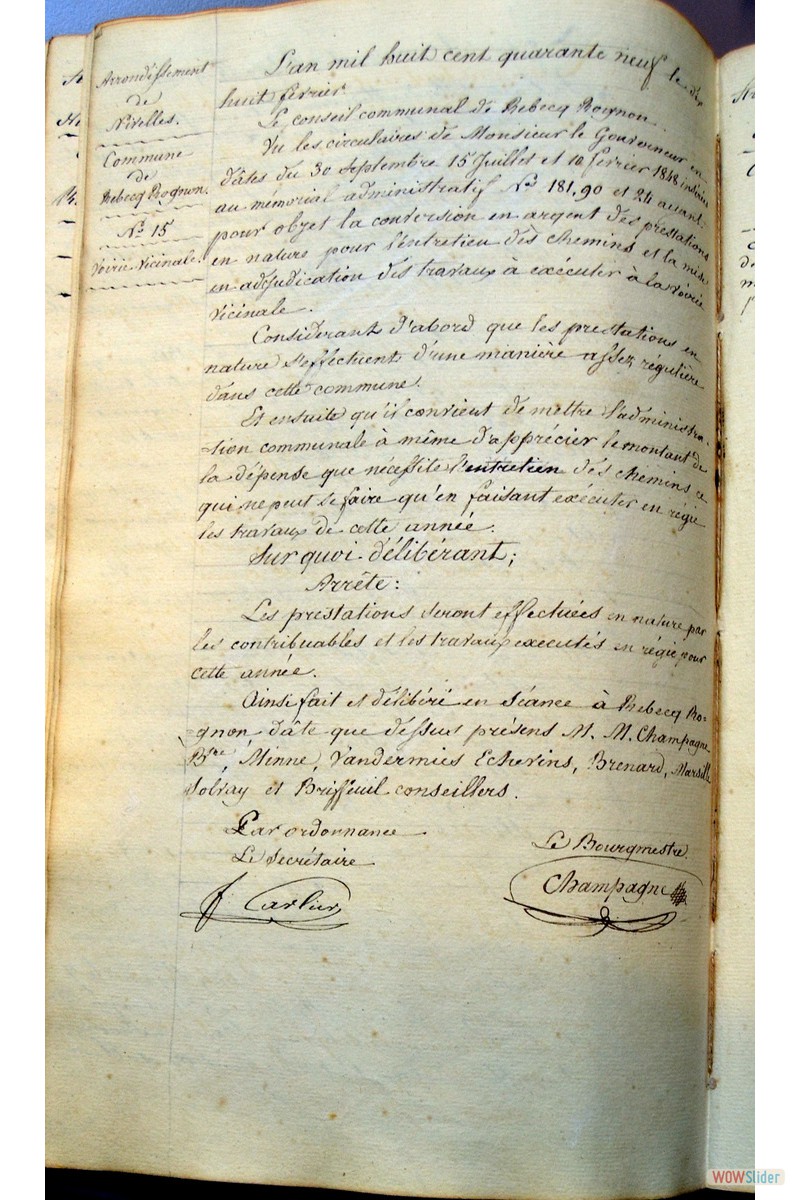 Arrondissement
de
Nivelles.
Commune
de
Rebecq Rognon.
N° 15
Voirie Vicinale.
L'an mil huit cent quarante neuf le dix
huit février
Le conseil communal de Rebecq Rognon.
Vu les circulaires de Monsieur le Gouverneur en
dâtes du 30 Septembre 15 Juillet et 10 février 1848 insérées
au mémorial administratif Nos 181, 90 et 24 ayant
pour objet la conversion en argent des prestations
en nature pour l'entretien des chemins et la mise
en adjudication des travaux à exécuter à la voirie
vicinale.
Considerant d'abord que les prestations en
nature s'effectuent d'une manière assez régulière
dans cette commune.
Et ensuite qu'il convient de mettre l'administra-
-tion communale à même d'apprécier le montant de
la dépense que nécessite l'entretien des chemins ce
qui ne peut se faire qu'en faisant exécuter en régie
les travaux de cette année.
Sur quoi délibérant;
Arrête:
Les prestations seront effectuées en nature par
les contribuables et les travaux executés en régie pour
cette année.
Ainsi fait et délibéré en séance à Rebecq Ro-
-gnon dâte que dessus présens M. M. Champagne
Bre, Minne, Vandermies Echevins, Brenard, Marsill
Solvay et Briffeuil conseillers.
Par ordonnance
Le Secrétaire
Carlier
Le Bourgmestre
Champagne
WOWSlider